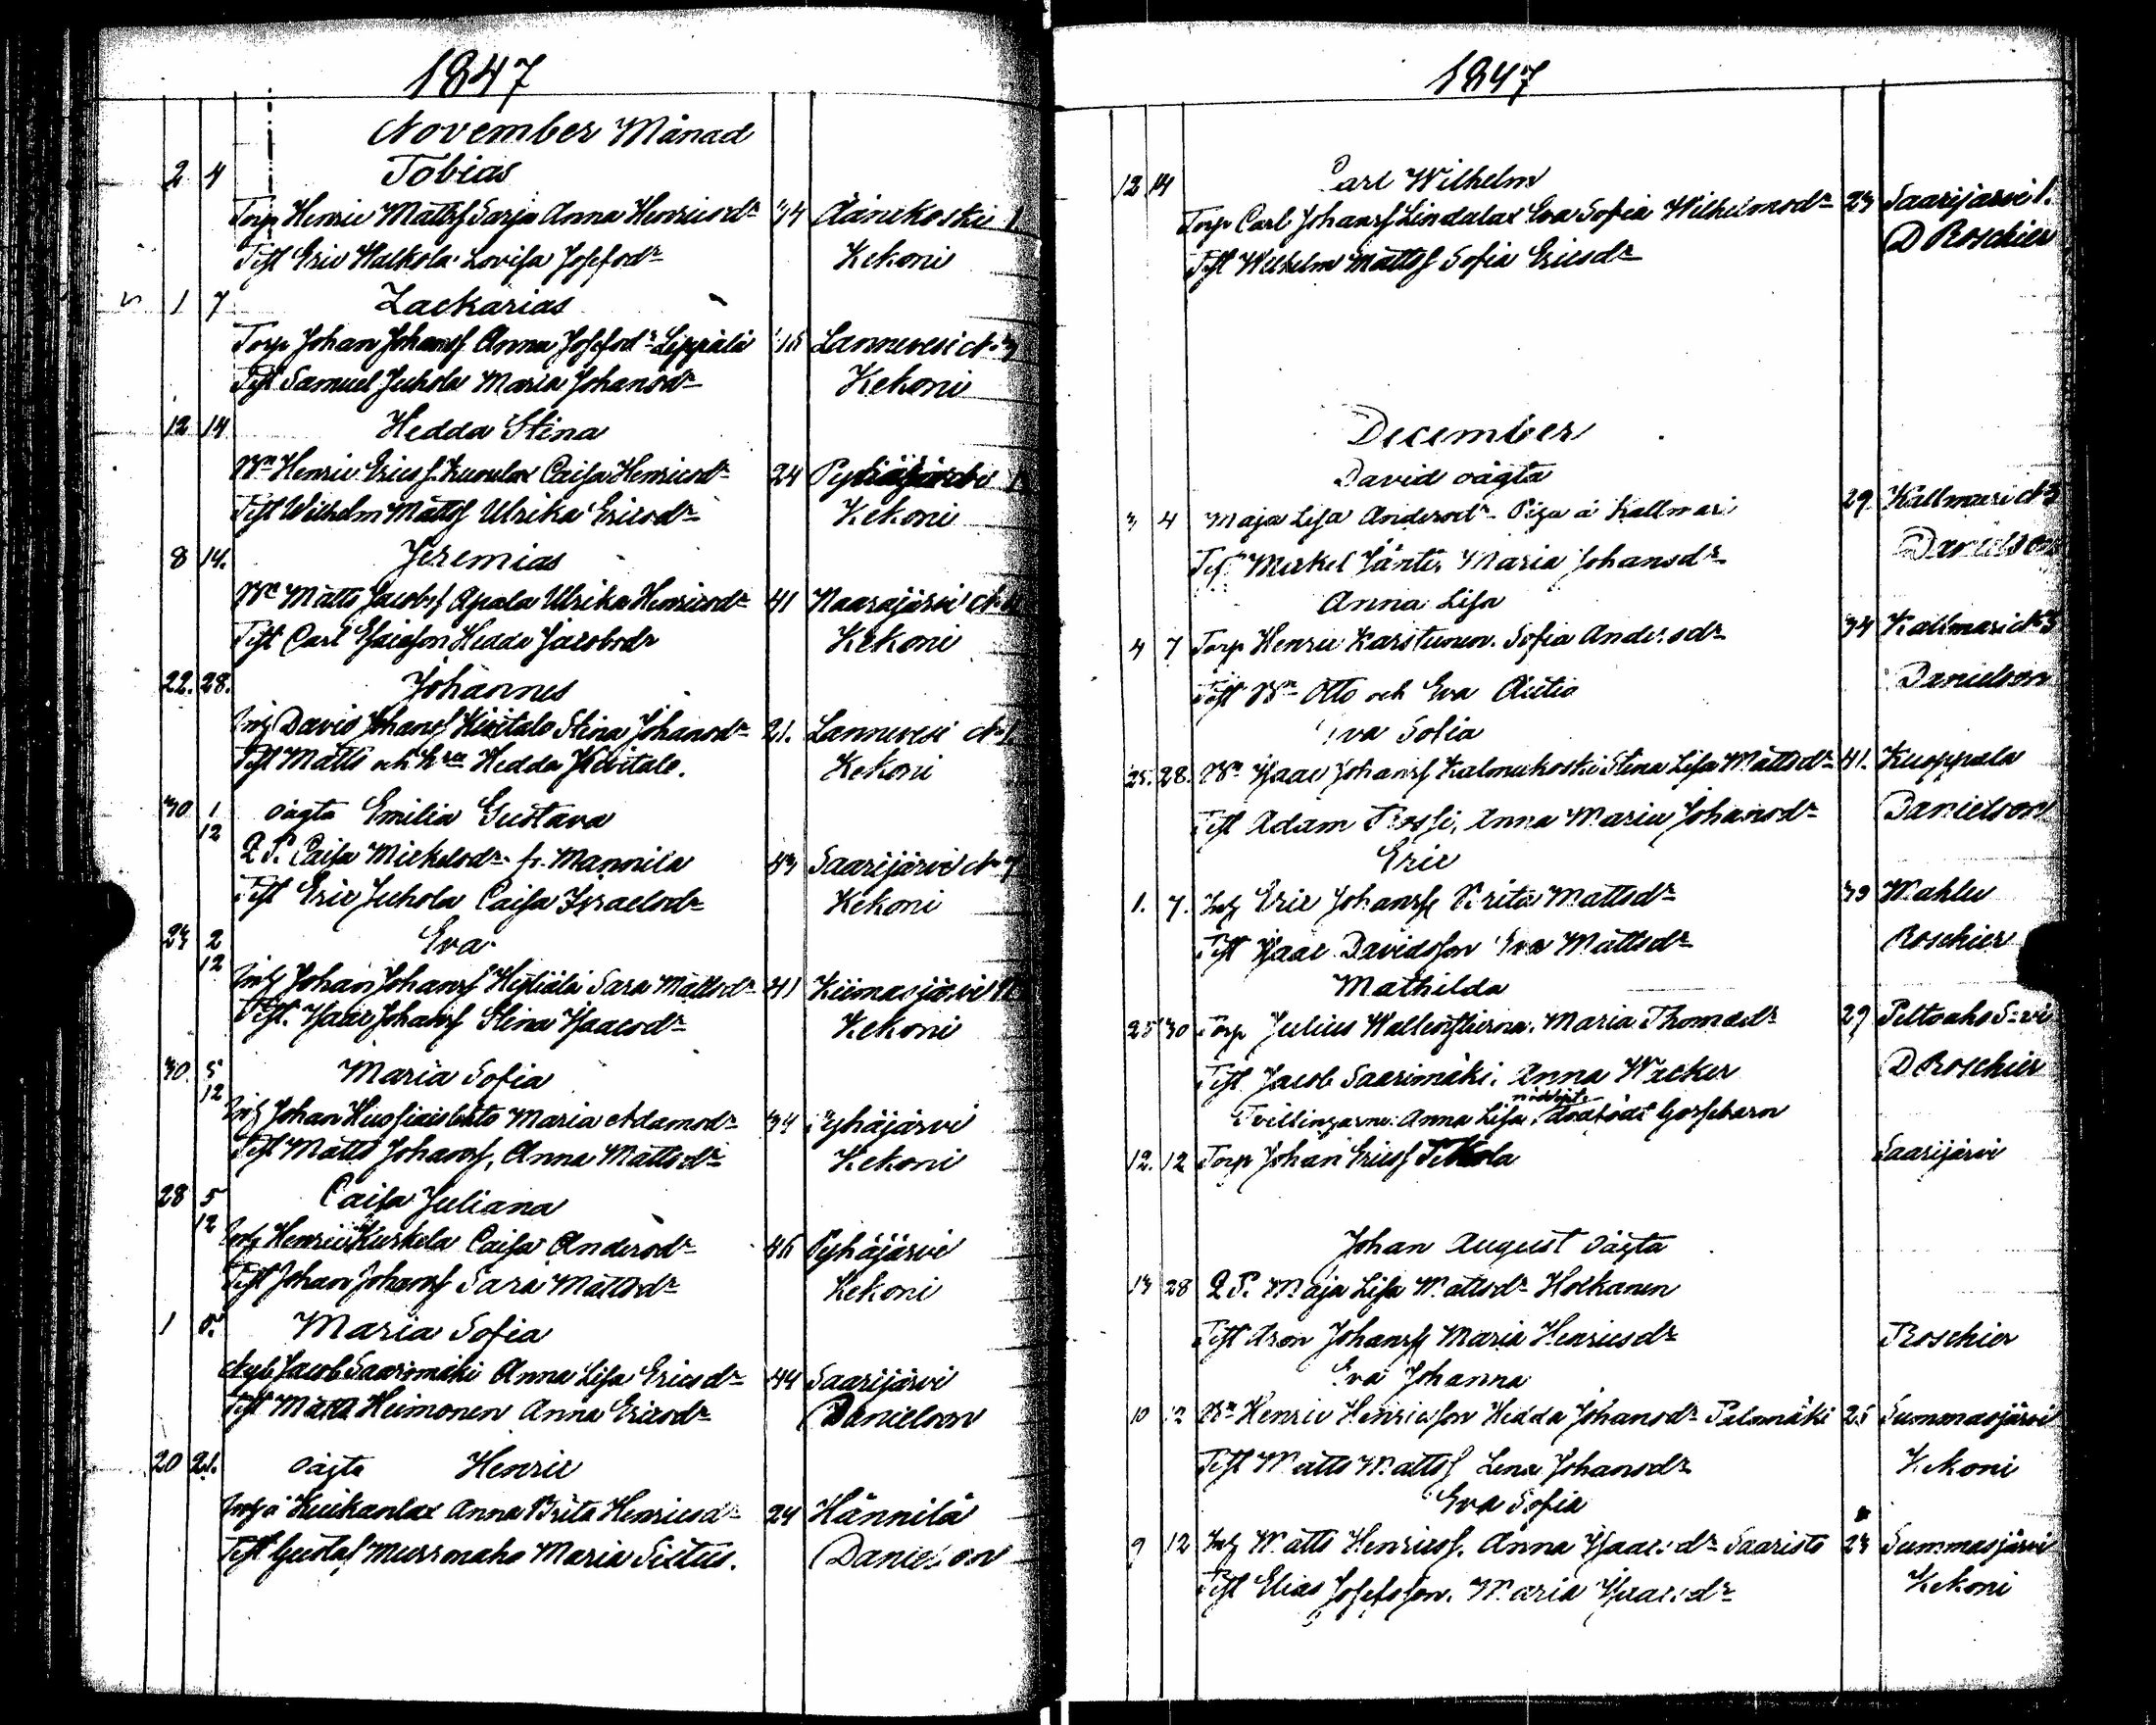 1847
November Månad
2 4 Tobias
Torp Henric Mattsf Sarja Anna Henricsdr 34 Äänekoski 1
Test Eric Walkola Lovisa Josefsdr Kekoni
1 7 Zackarias
Torp Johan Johansf Anna Josefsdr Leppälä Lannevesi N 3
Test Samuel Juhola Maria Johansdr Kekoni
12 14 Hedda Stina
Bn Henric Ericsf Kuoulax Caisa Henricsdr 24
Test Wilhelm Mattsf Ulrika Ericsdr Kekoni
8 14. Jeremias
Bn Matts Jacobsf Apala Ulrika Henricsdr 41 Naarajärvi N
Test Carl Isaksson Hedda Jacobsdr Kekoni
22. 28. Johannes
Inh David Johansf Kivitalo Stina Johansdr 21. Lannevesi N 1
Test Matts och hra Hedda Kivitalo. Kekoni
30 1/12 oägta Emilia Gustava
Q P. Caisa Mickelsdr fr. Mannila 43 Saarijärvi N 7
Test Eric Juhola Caisa Israelsdr Kekoni
23 2/12 Eva
Inh Johan Johansf Sara Mattsdr 41 Kiimasjärvi
Test. Isaac Johansf Stina Isacsdr Kekoni
30. 5/12 Maria Sofia
Inh Johan Maria Adamsdr 34 Pyhäjärvi
Test Matts Johansf, Anna Mattsdr Kekoni
28 5/12 Caisa Juliana
Inh Henric Kuskela Caisa Andersdr Pyhäjärvi
Test Johan Johansf Sara Mattsdr Kekoni
1 5. Maria Sofia
Nyb Jacob Saarimäki Anna Lisa Ericsdr 44 Saarijärvi
Test Matts Heimonen Anna Ericsdr Danielson
20 21. oägta Henric
Inh å Kiukanlax Anna Brita Henricsdr 24 Hännilä
Test Gustaf Mursonaho Maria Sixtus. Danielson
1847
12 14 Carl Wilhelm
Torp Carl Johansf Lindalax Eva Sofia Wilhelmsdr 23 Saarijärvi 1.
Test Wilhelm Mattsf Sofia Ericsdr D Roschier
December
David oägta
3 4 Maja Lisa Andersdr Piga å Kallmari 29 Kallmari N 3
Test Mickel Jänter Maria Johansdr Danielson
Anna Lisa
4 7 Torp Henric Karstunen. Sofia Andersdr 34 Kallmari N 3
Test Bn Otto och Eva Autio Danielson
Eva Sofia
25. 28. Bn Isaac Johansf Kalmukoski Stina Lisa Mattsdr 41. Kuoppala
Test Adam Possi, Anna Maria Johansdr Danielson
Eric
1. 7. Inh Eric Johansf Brita Mattsdr 39 Mahlu
Test Isaac Davidsson Eva Mattsdr Roschier
Mathilda
25 30 Torp Julius Maria Thomasdr 29 Peltoaho S:vi
Test Jacob Saarimäki. Anna Wacker D Roschier
Tvillingarne: Anna Lisa, nöddöpt dödfödt Gossebarn
12. 12 Torp Johan Ericsf Saarijärvi
Johan August oägta
13 28 Q P. Maja Lisa Mattsdr Hokkanen
Test Aron Johansf Maria Henricsdr Roschier
Eva Johanna
10 12 Bn Henric Henricsson Hedda Johansdr Palomäki 25 Summasjärvi
Test Matts Mattsf Lena Johansdr Kekoni
Eva Sofia
9 12 Inh Matts Henricsf. Anna Isaacsdr Saaristo 23 Summasjärvi
Test Elias Josefsson. Maria Isaacsdr Kekoni